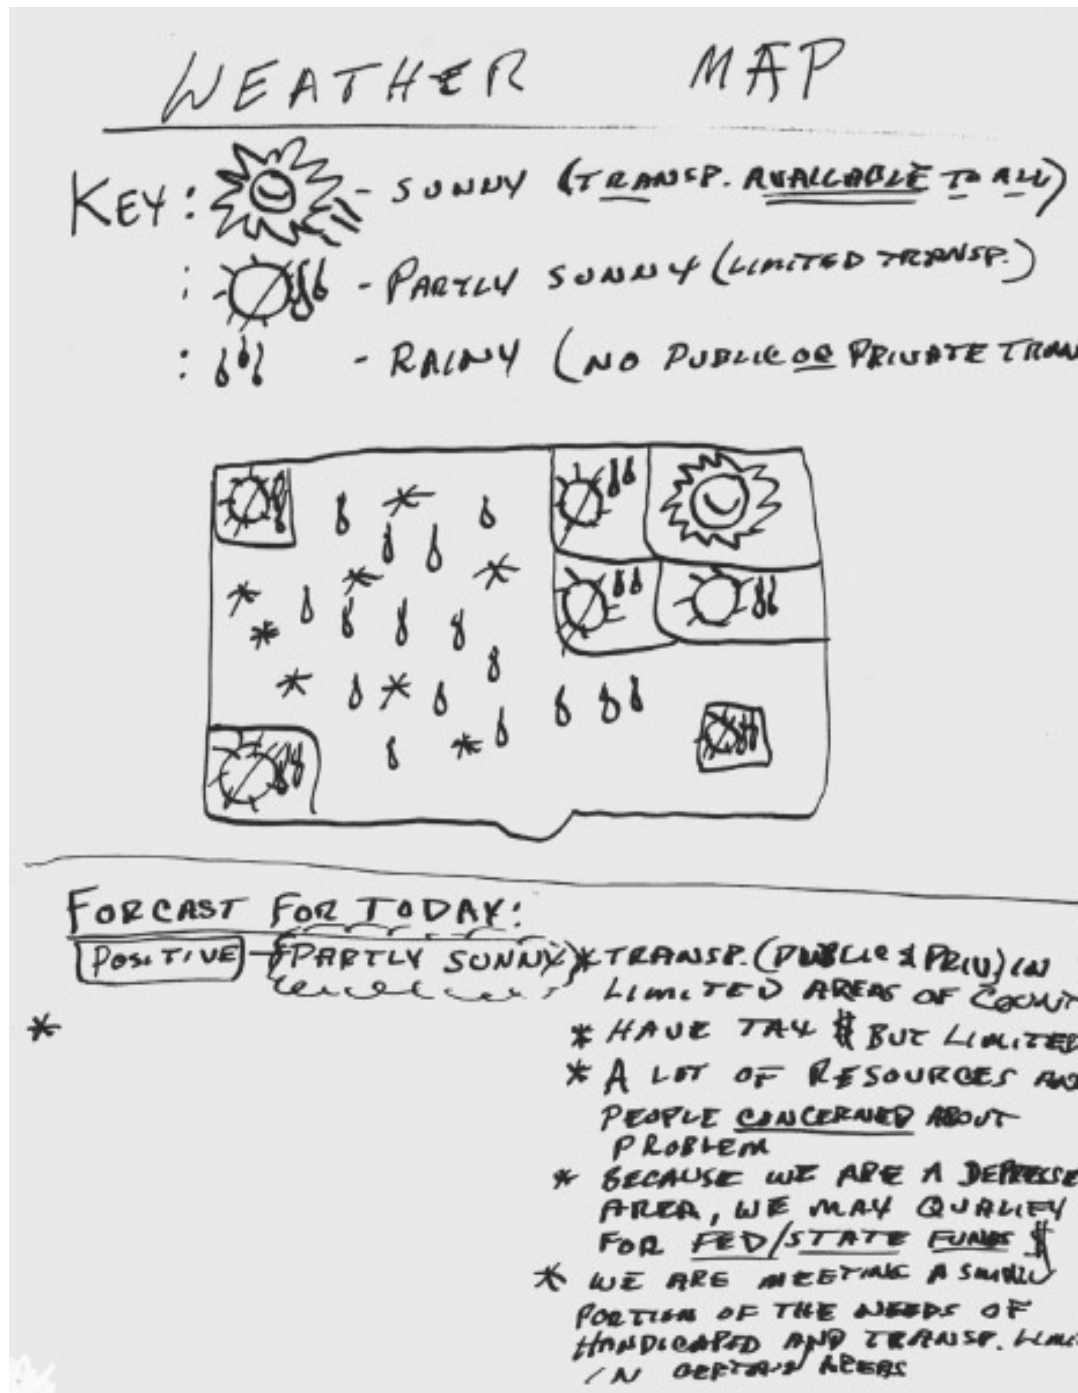 WEATHER MAP
KEY: - SUNNY (TRANSP. AVAILABLE TO ALL)
: - PARTLY SUNNY (LIMITED TRANSP.)
: - RAINY (NO PUBLIC OR PRIVATE TRAN
FORCAST FOR TODAY:
POSITIVE - PARTLY SUNNY * TRANSP. (PUBLIC & PRIV) IN
LIMITED AREAS OF COUNT
*
* HAVE TAX $ BUT LIMITED
* A LOT OF RESOURCES AND
PEOPLE CONCERNED ABOUT
PROBLEM
* BECAUSE WE ARE A DEPRESSE
AREA, WE MAY QUALIFY
FOR FED/STATE FUNDS $
* WE ARE MEETING A SMALL
PORTION OF THE NEEDS OF
HANDICAPED AND TRANSP. LIMI
IN CERTAIN AREAS